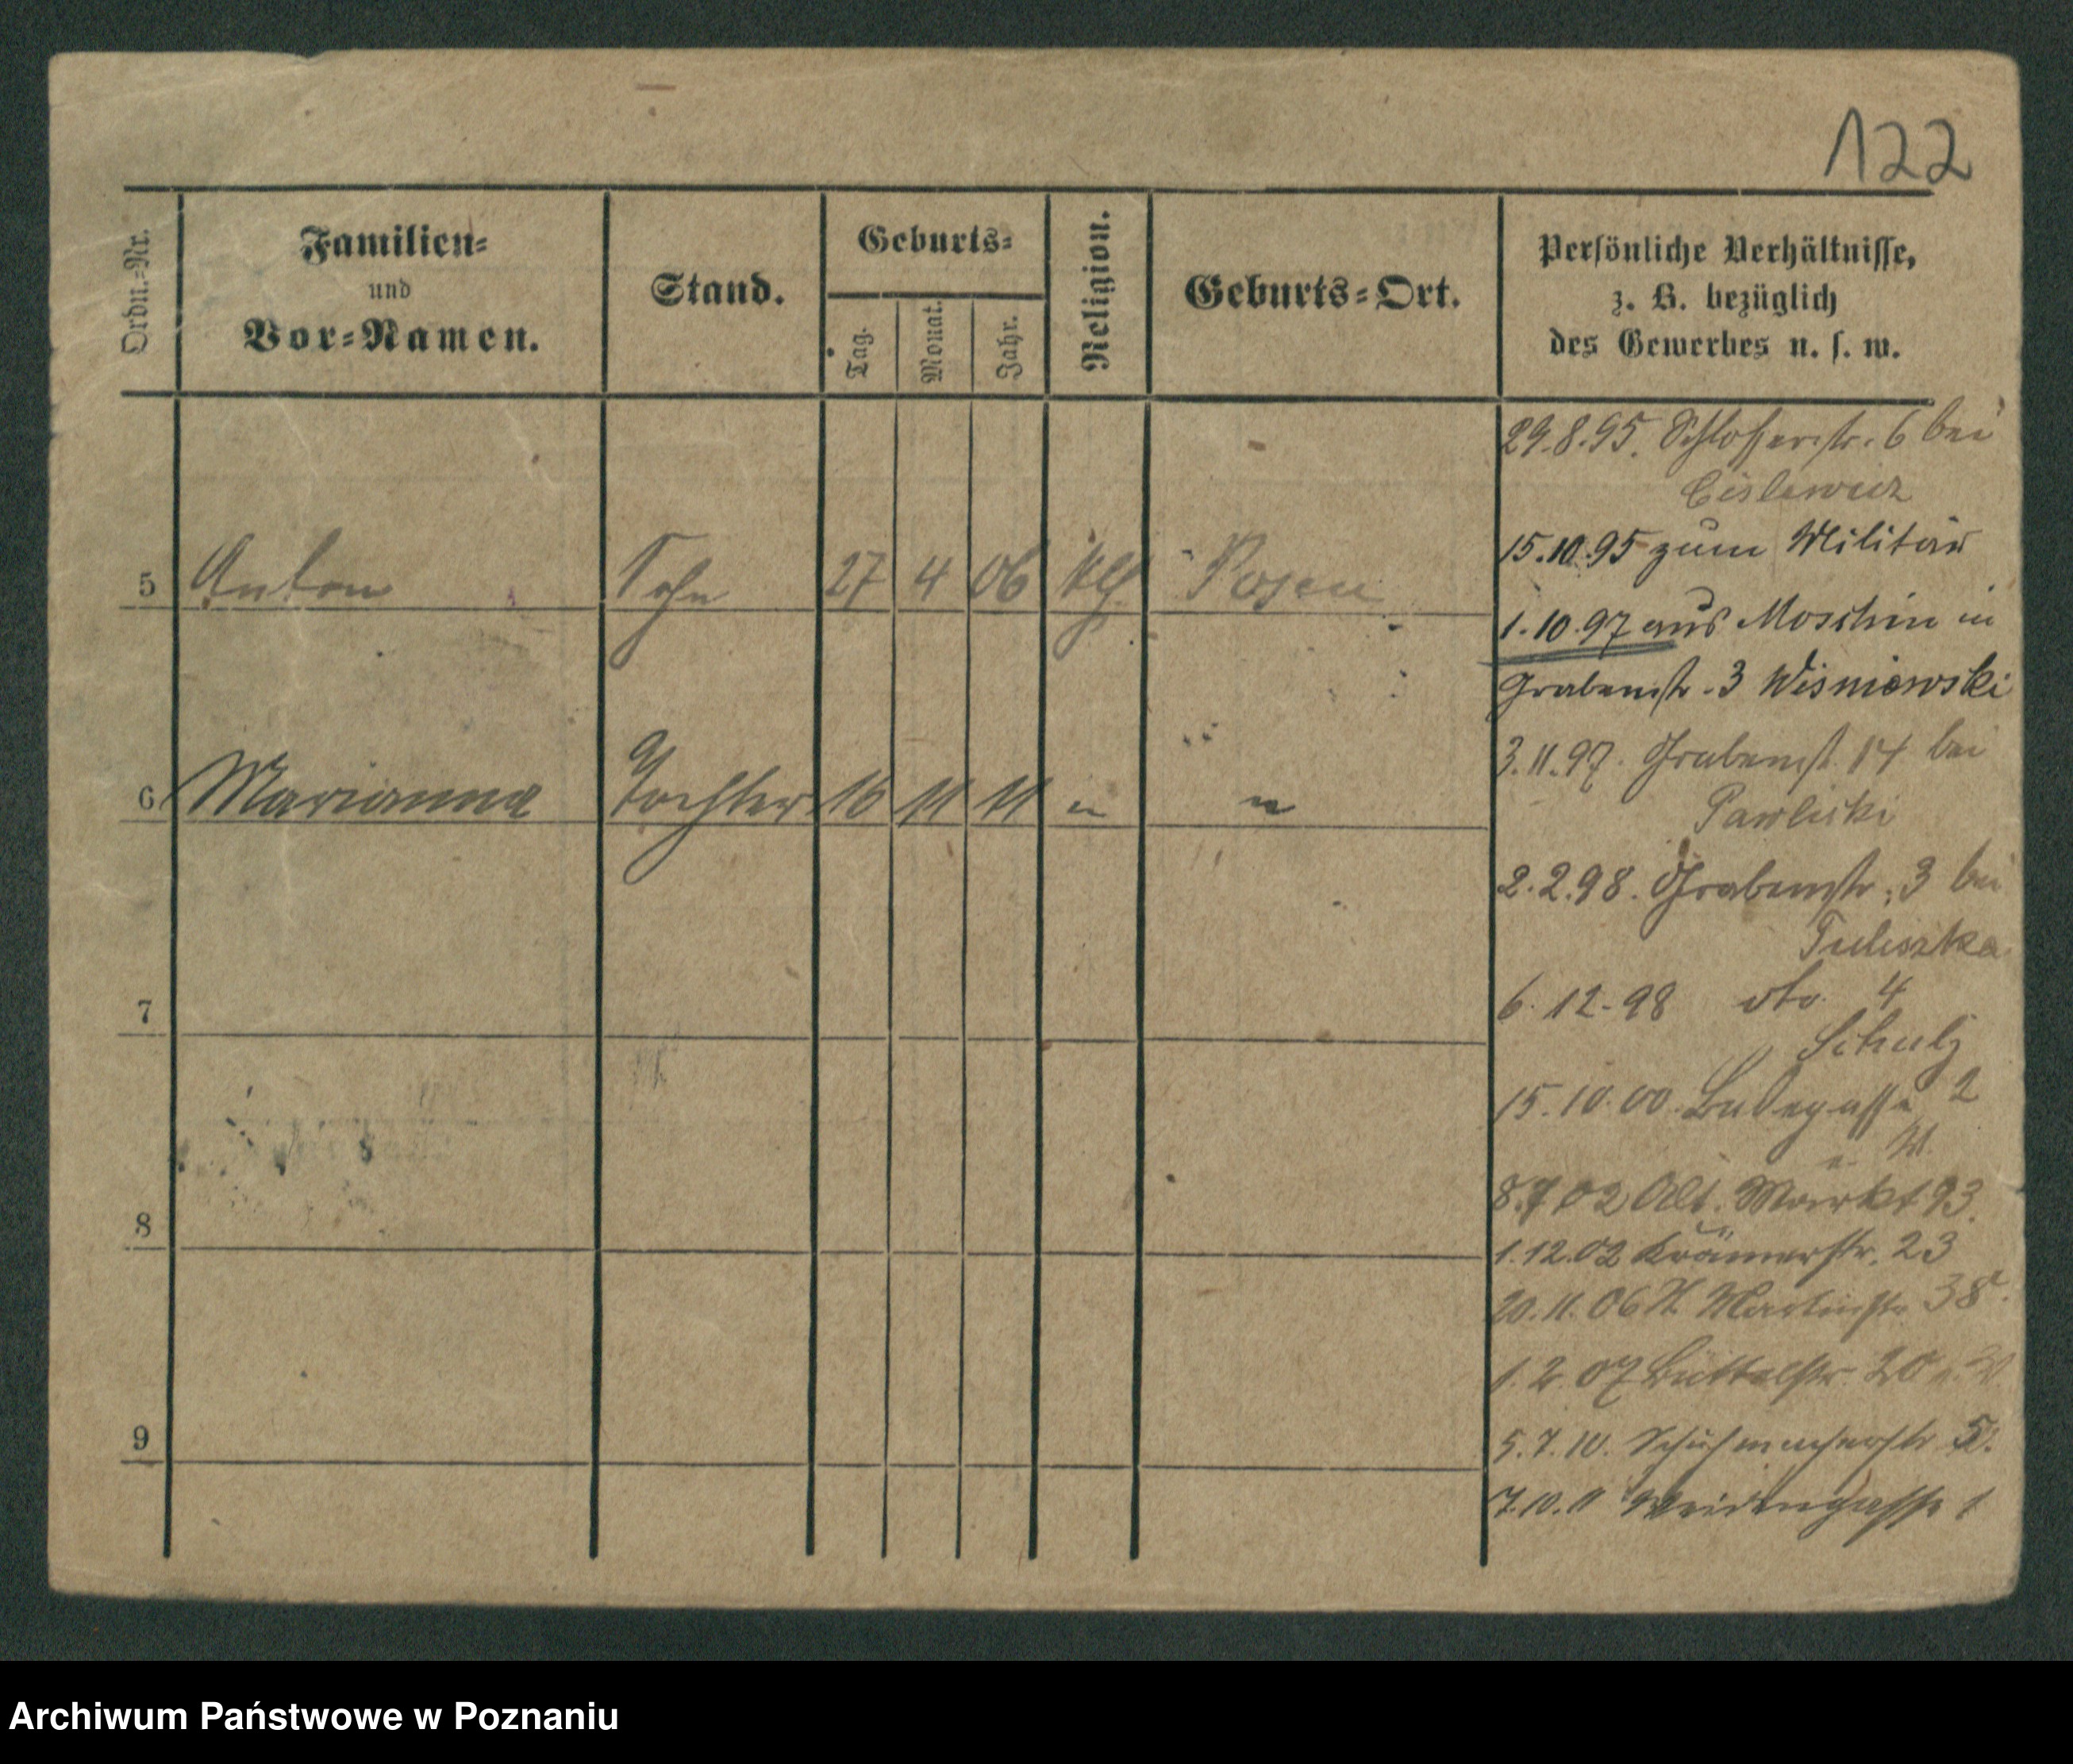 122
Ordn.-Nr.
Familien-
und
Vor-Namen.
Stand.
Geburts-
Tag.
Monat.
Jahr.
Religion.
Geburts-Ort.
Persönliche Verhältnisse,
z. B. bezüglich
des Gewerbes u. s. w.
5 Anton Sohn 27 4 06 kth Posen
6 Marianna Tochter 16 11 11 " "
7
8
9
29.8.95. Schlosserstr. 6 bei
15.10.95 zum Militär
1.10.97 aus Moschin in
Grabenstr. 3 Wisniewski
3.11.97. Grabenstr. 14 bei
Pawlicki
2.2.98. Grabenstr. 3 bei
Tuliszka
6.12.98 dto. 4
Schulz
15.10.00. Badegasse 2
8.7.02 Alt. Markt 93.
1.12.02 Krämerstr. 23
20.11.06 St Martinstr. 38
1.2.07 Büttelstr. 20
5.7.10. Schuhmacherstr 5.
7.10.11 Weidengasse 1
Archiwum Państwowe w Poznaniu